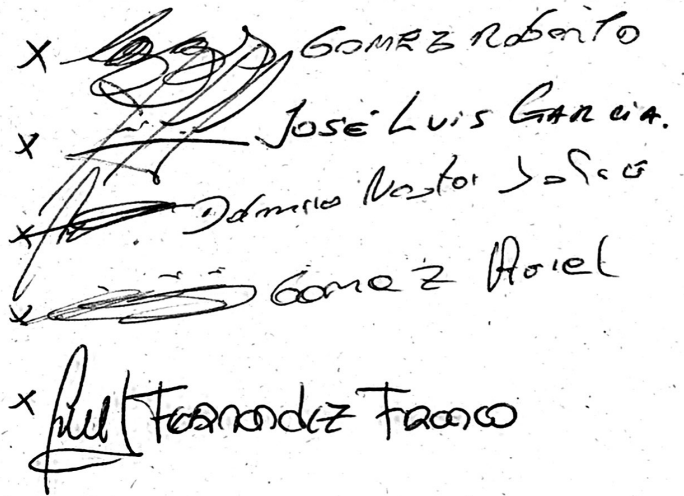 x GOMEZ Roberto
x JOSÉ LUIS GARCIA.
x Damario Nestor
x GomeZ Ariel
x Fernandez Franco